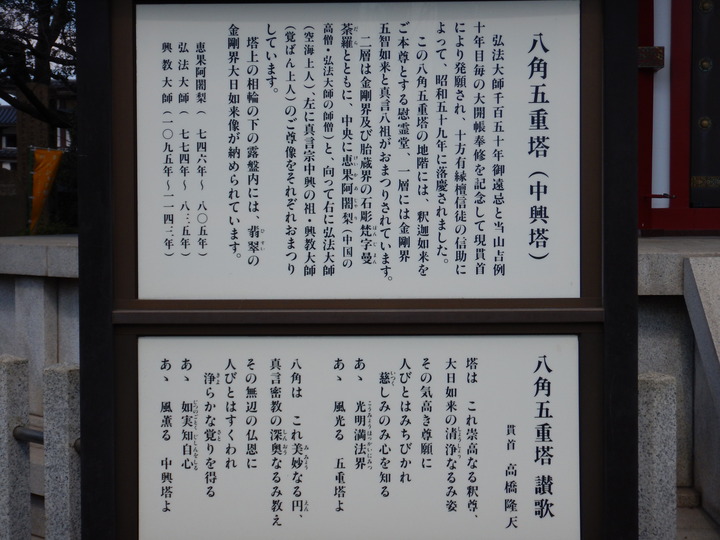 八角五重塔(中興塔)
弘法大師千百五十年御遠忌と当山吉例
十年目毎の大開帳奉修を記念して現貫首
により発願され、十方有縁檀信徒の信助に
よって、昭和五十九年に落慶されました。
この八角五重塔の地階には、釈迦如来を
ご本尊とする慰霊堂、一層には金剛界
五智如来と真言八祖がおまつりされています。
二層は金剛界及び胎蔵界の石彫梵字曼
荼羅とともに、中央に恵果阿闍梨(中国の
高僧・弘法大師の師僧)と、向って右に弘法大師
(空海上人)、左に真言宗中興の祖・興教大師
(覚ばん上人)のご尊像をそれぞれおまつり
しています。
塔上の相輪の下の露盤内には、翡翠の
金剛界大日如来像が納められています。
恵果阿闍梨(七四六年~八〇五年)
弘法大師(七七四年~八三五年)
興教大師(一〇九五年~一一四三年)
八角五重塔 讃歌
貫首 高橋隆天
塔は これ崇高なる釈尊、
大日如来の清浄なるみ姿
その気高き尊願に
人びとはみちびかれ
慈しみのみ心を知る
あゝ 光明満法界
あゝ 風光る 五重塔よ
八角は これ美妙なる円、
真言密教の深奥なるみ教え
その無辺の仏恩に
人びとはすくわれ
浄らかな覚りを得る
あゝ 如実知自心
あゝ 風薫る 中興塔よ